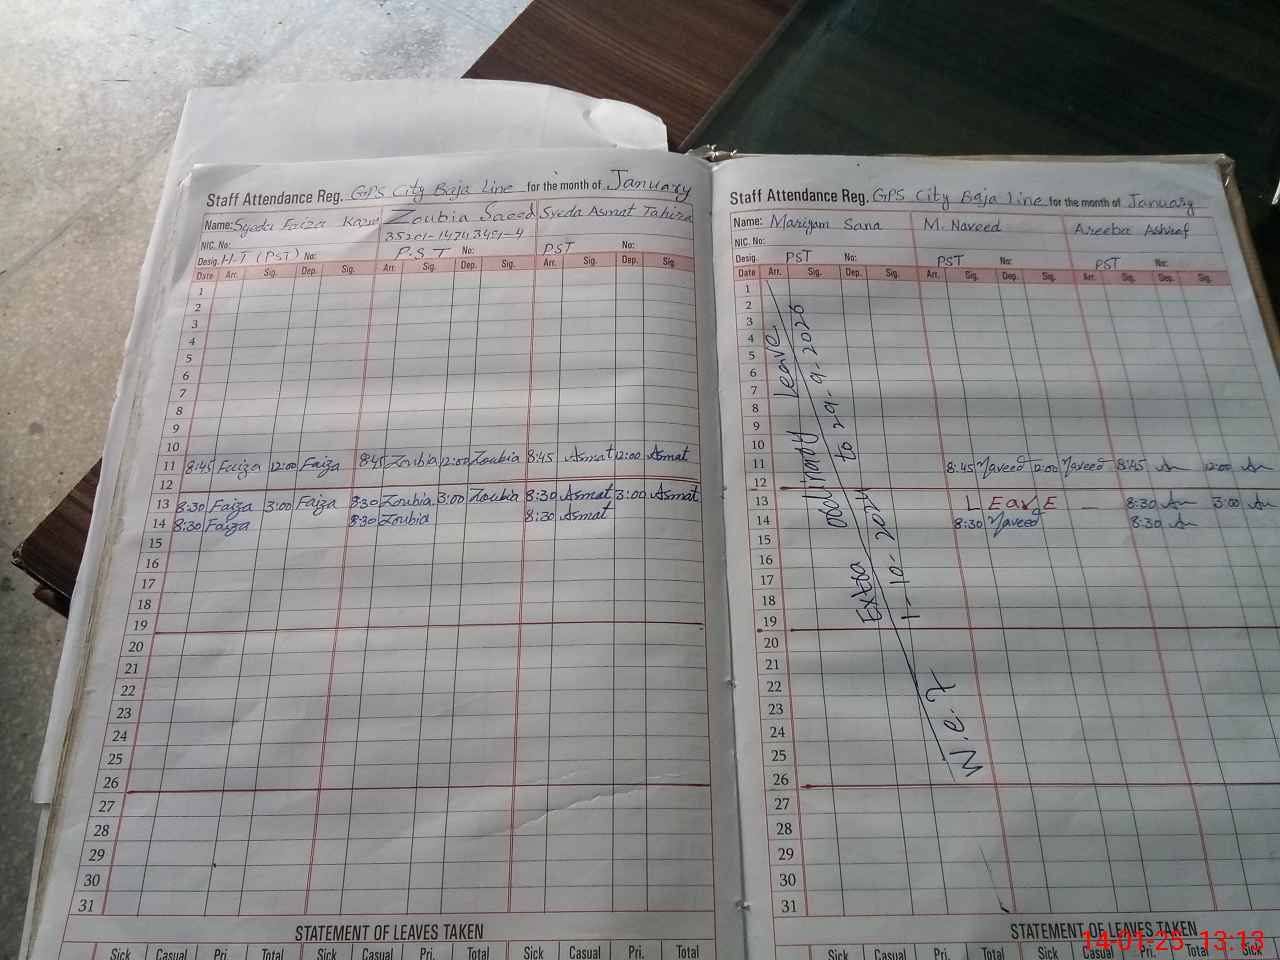 Staff Attendance Reg. GPS City Baja Line for the month of January
Name: Syeda Faiza Kazmi Zoubia Saeed Syeda Asmat Tahira
NIC. No: 35201-14743491-4
Desig. H.T (PST) No: P.S.T No: PST No:
Date Arr. Sig. Dep. Sig. Arr. Sig. Dep. Sig. Arr. Sig. Dep. Sig.
1
2
3
4
5
6
7
8
9
10
11 8:45 Faiza 12:00 Faiza 8:45 Zoubia 12:00 Zoubia 8:45 Asmat 12:00 Asmat
12
13 8:30 Faiza 3:00 Faiza 8:30 Zoubia 3:00 Zoubia 8:30 Asmat 3:00 Asmat
14 8:30 Faiza 8:30 Zoubia 8:30 Asmat
15
16
17
18
19
20
21
22
23
24
25
26
27
28
29
30
31
STATEMENT OF LEAVES TAKEN
Sick Casual Pri. Total Sick Casual Pri. Total Sick Casual Pri. Total
Staff Attendance Reg. GPS City Baja Line for the month of January
Name: Mariyam Sana M. Naveed Areeba Ashraf
NIC. No:
Desig. PST No: PST No: PST No:
Date Arr. Sig. Dep. Sig. Arr. Sig. Dep. Sig. Arr. Sig. Dep. Sig.
1
2
3
4
5
6
7
8
9
10
11 8:45 Naveed 12:00 Naveed 8:45 12:00
12
13 LEAVE - 8:30 3:00
14 8:30 Naveed 8:30
15
16
17
18
19
20
21
22
23
24
25
26
27
28
29
30
31
Extra Ordinary Leave
W.e.f 1-10-2024 to 29-9-2026
STATEMENT OF LEAVES TAKEN
Sick Casual Pri. Total Sick Casual Pri. Total Sick
14-01-25 13:13